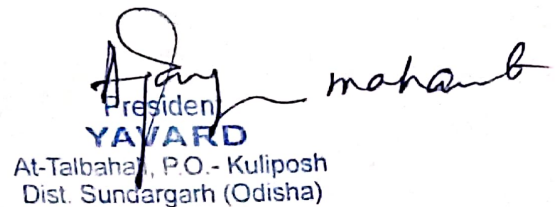 Ajay mahant
President
YAVARD
At-Talbahali, P.O.- Kuliposh
Dist. Sundargarh (Odisha)